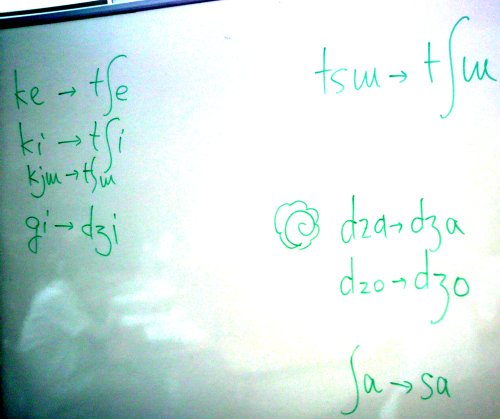 ke → tʃe
ki → tʃi
kjɯ → tʃɯ
gi → dʒi
tsɯ → tʃɯ
dza → dʒa
dzo → dʒo
ʃa → sa